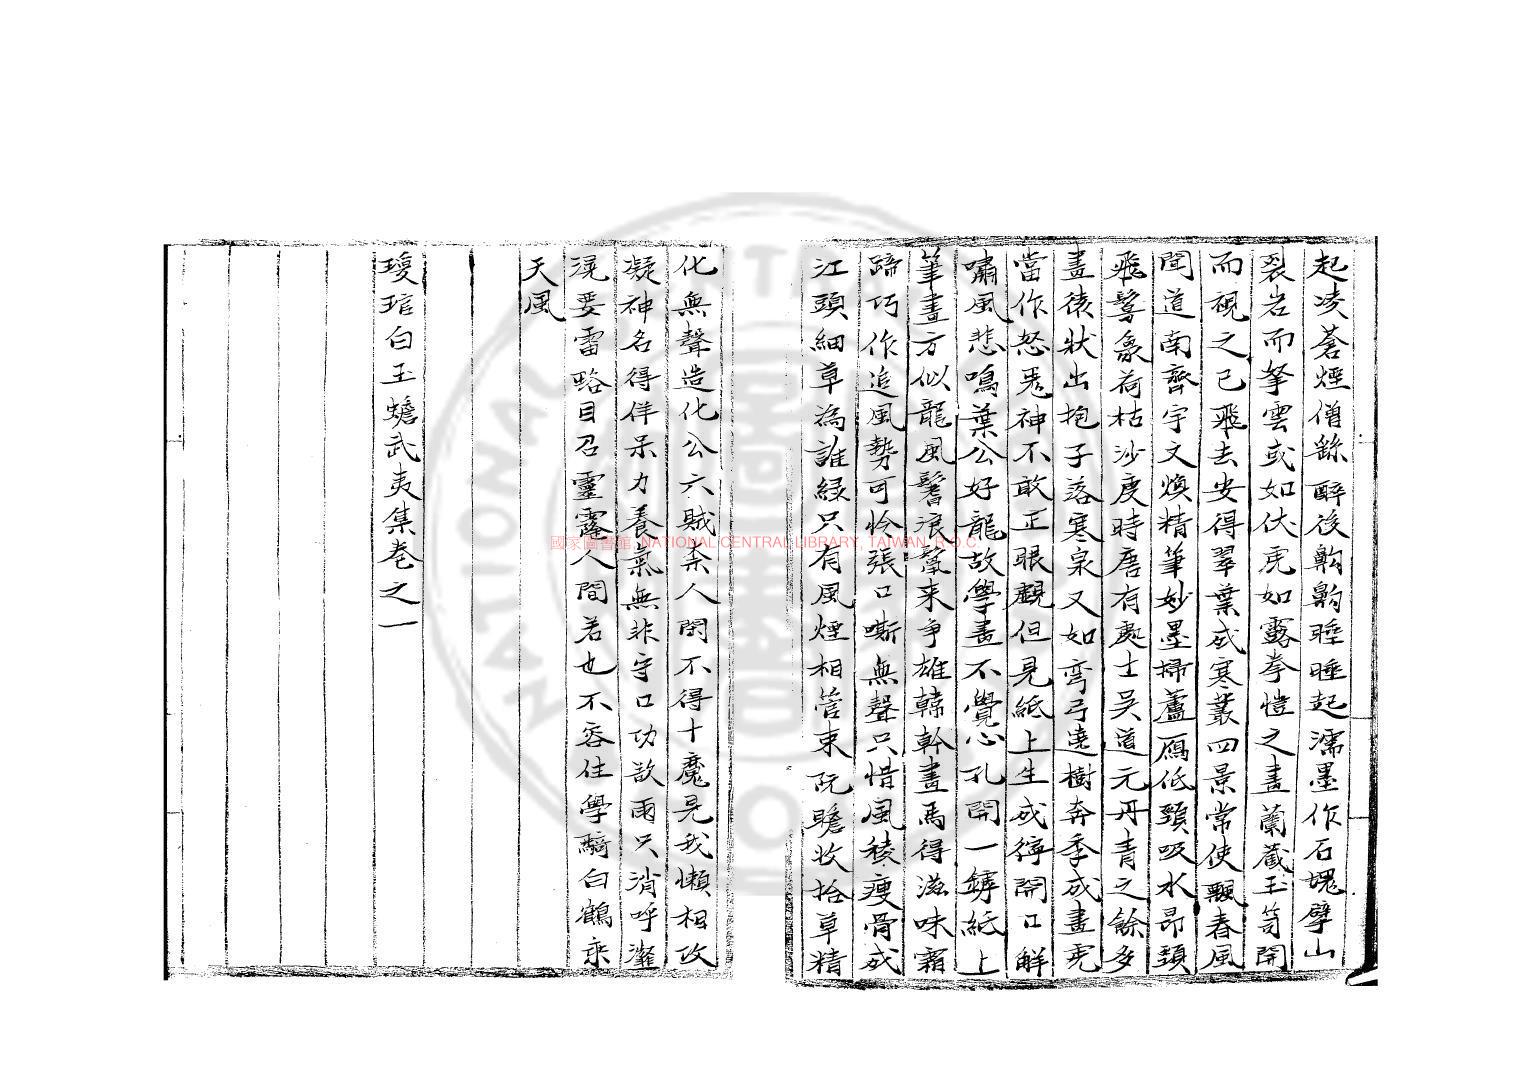 起凌蒼煙僧繇醉後齁齁睡睡起濡墨作石塊擘山
裂岩而拏雲或如伏虎如露拳愷之畫蘭藏玉笥開
而視之已飛去安得翠葉成寒叢四景常使飄春風
聞道南齊宇文煥精筆妙墨掃蘆鴈低頸吸水昂頸
飛鴛象荷枯沙度時唐有處士吳道元丹青之餘多
畫猿狀出抱子落寒泉又如弯弓遶樹奔季成畫虎
當作怒鬼神不敢正眼覷但見紙上生成獰開口解
嘯風悲鳴葉公好龍故學畫不覺心孔開一鏬紙上
筆畫方似龍風鬐浪鬣来争雄韓幹畫馬得滋味霜
蹄巧作追風勢可怜張口嘶無聲只惜風稜瘦骨成
江頭細草為誰緑只有風煙相管束阮瞻收拾草精
化無聲造化公六賊柰人閑不得十魔見我懶相攻
凝神名得佯呆力養氣無非守口功歆雨只消呼灑
滉要雷略目召靈䨩人間若也不容住學騎白鶴乘
天風
瓊琯白玉蟾武夷集卷之一
國家圖書館, NATIONAL CENTRAL LIBRARY, TAIWAN, R.O.C